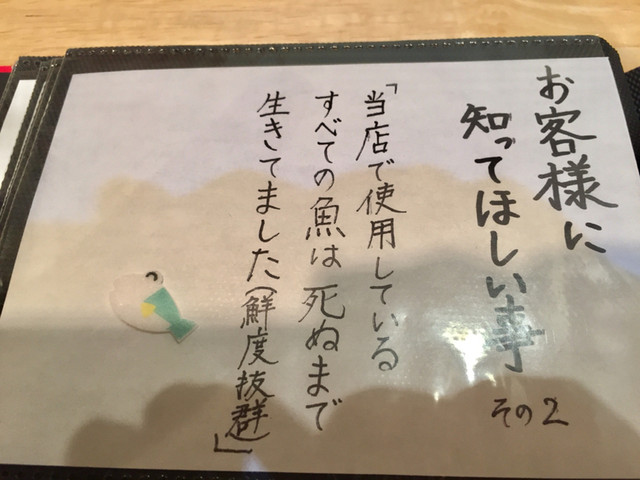 お客様に
知ってほしい事
その2
「当店で使用している
すべての魚は死ぬまで
生きてました(鮮度抜群)」